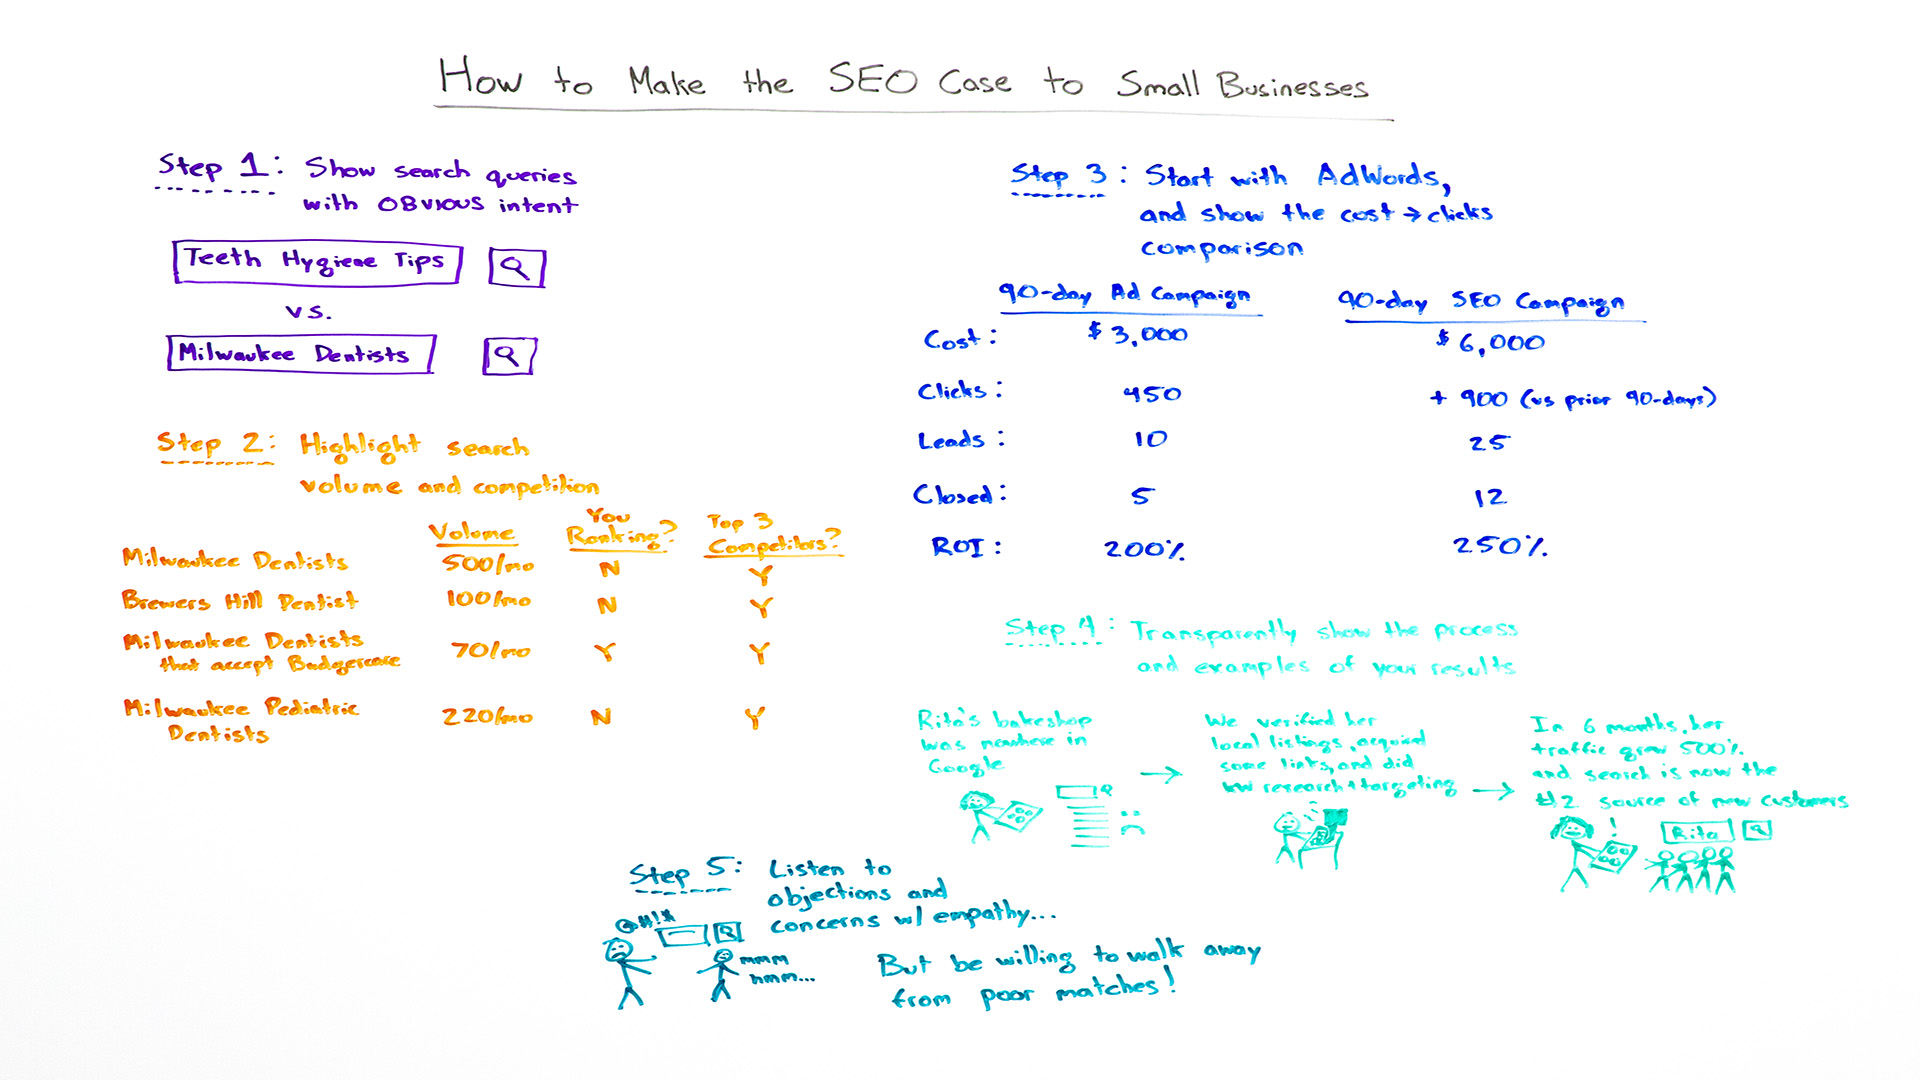 How to Make the SEO Case to Small Businesses
Step 1: Show search queries
with OBVIOUS intent
Teeth Hygiene Tips
vs.
Milwaukee Dentists
Step 2: Highlight search
volume and competition
Volume You Ranking? Top 3 Competitors?
Milwaukee Dentists 500/mo N Y
Brewers Hill Dentist 100/mo N Y
Milwaukee Dentists
that accept Badgercare 70/mo Y Y
Milwaukee Pediatric
Dentists 220/mo N Y
Step 3: Start with AdWords,
and show the cost → clicks
comparison
90-day Ad Campaign 90-day SEO Campaign
Cost: $3,000 $6,000
Clicks: 450 + 900 (vs prior 90-days)
Leads: 10 25
Closed: 5 12
ROI: 200% 250%
Step 4: Transparently show the process
and examples of your results
Rita's bakeshop
was nowhere in
Google
We verified her
local listings, acquired
some links, and did
kw research + targeting
In 6 months, her
traffic grew 500%
and search is now the
#2 source of new customers
!
Rita
Step 5: Listen to
objections and
concerns w/ empathy...
@#!*
mmm
hmm...
But be willing to walk away
from poor matches!